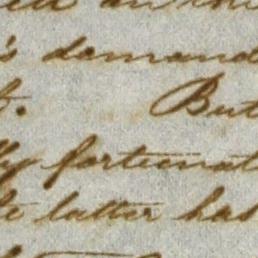 's demand
. But
ly fortunat
he latter has